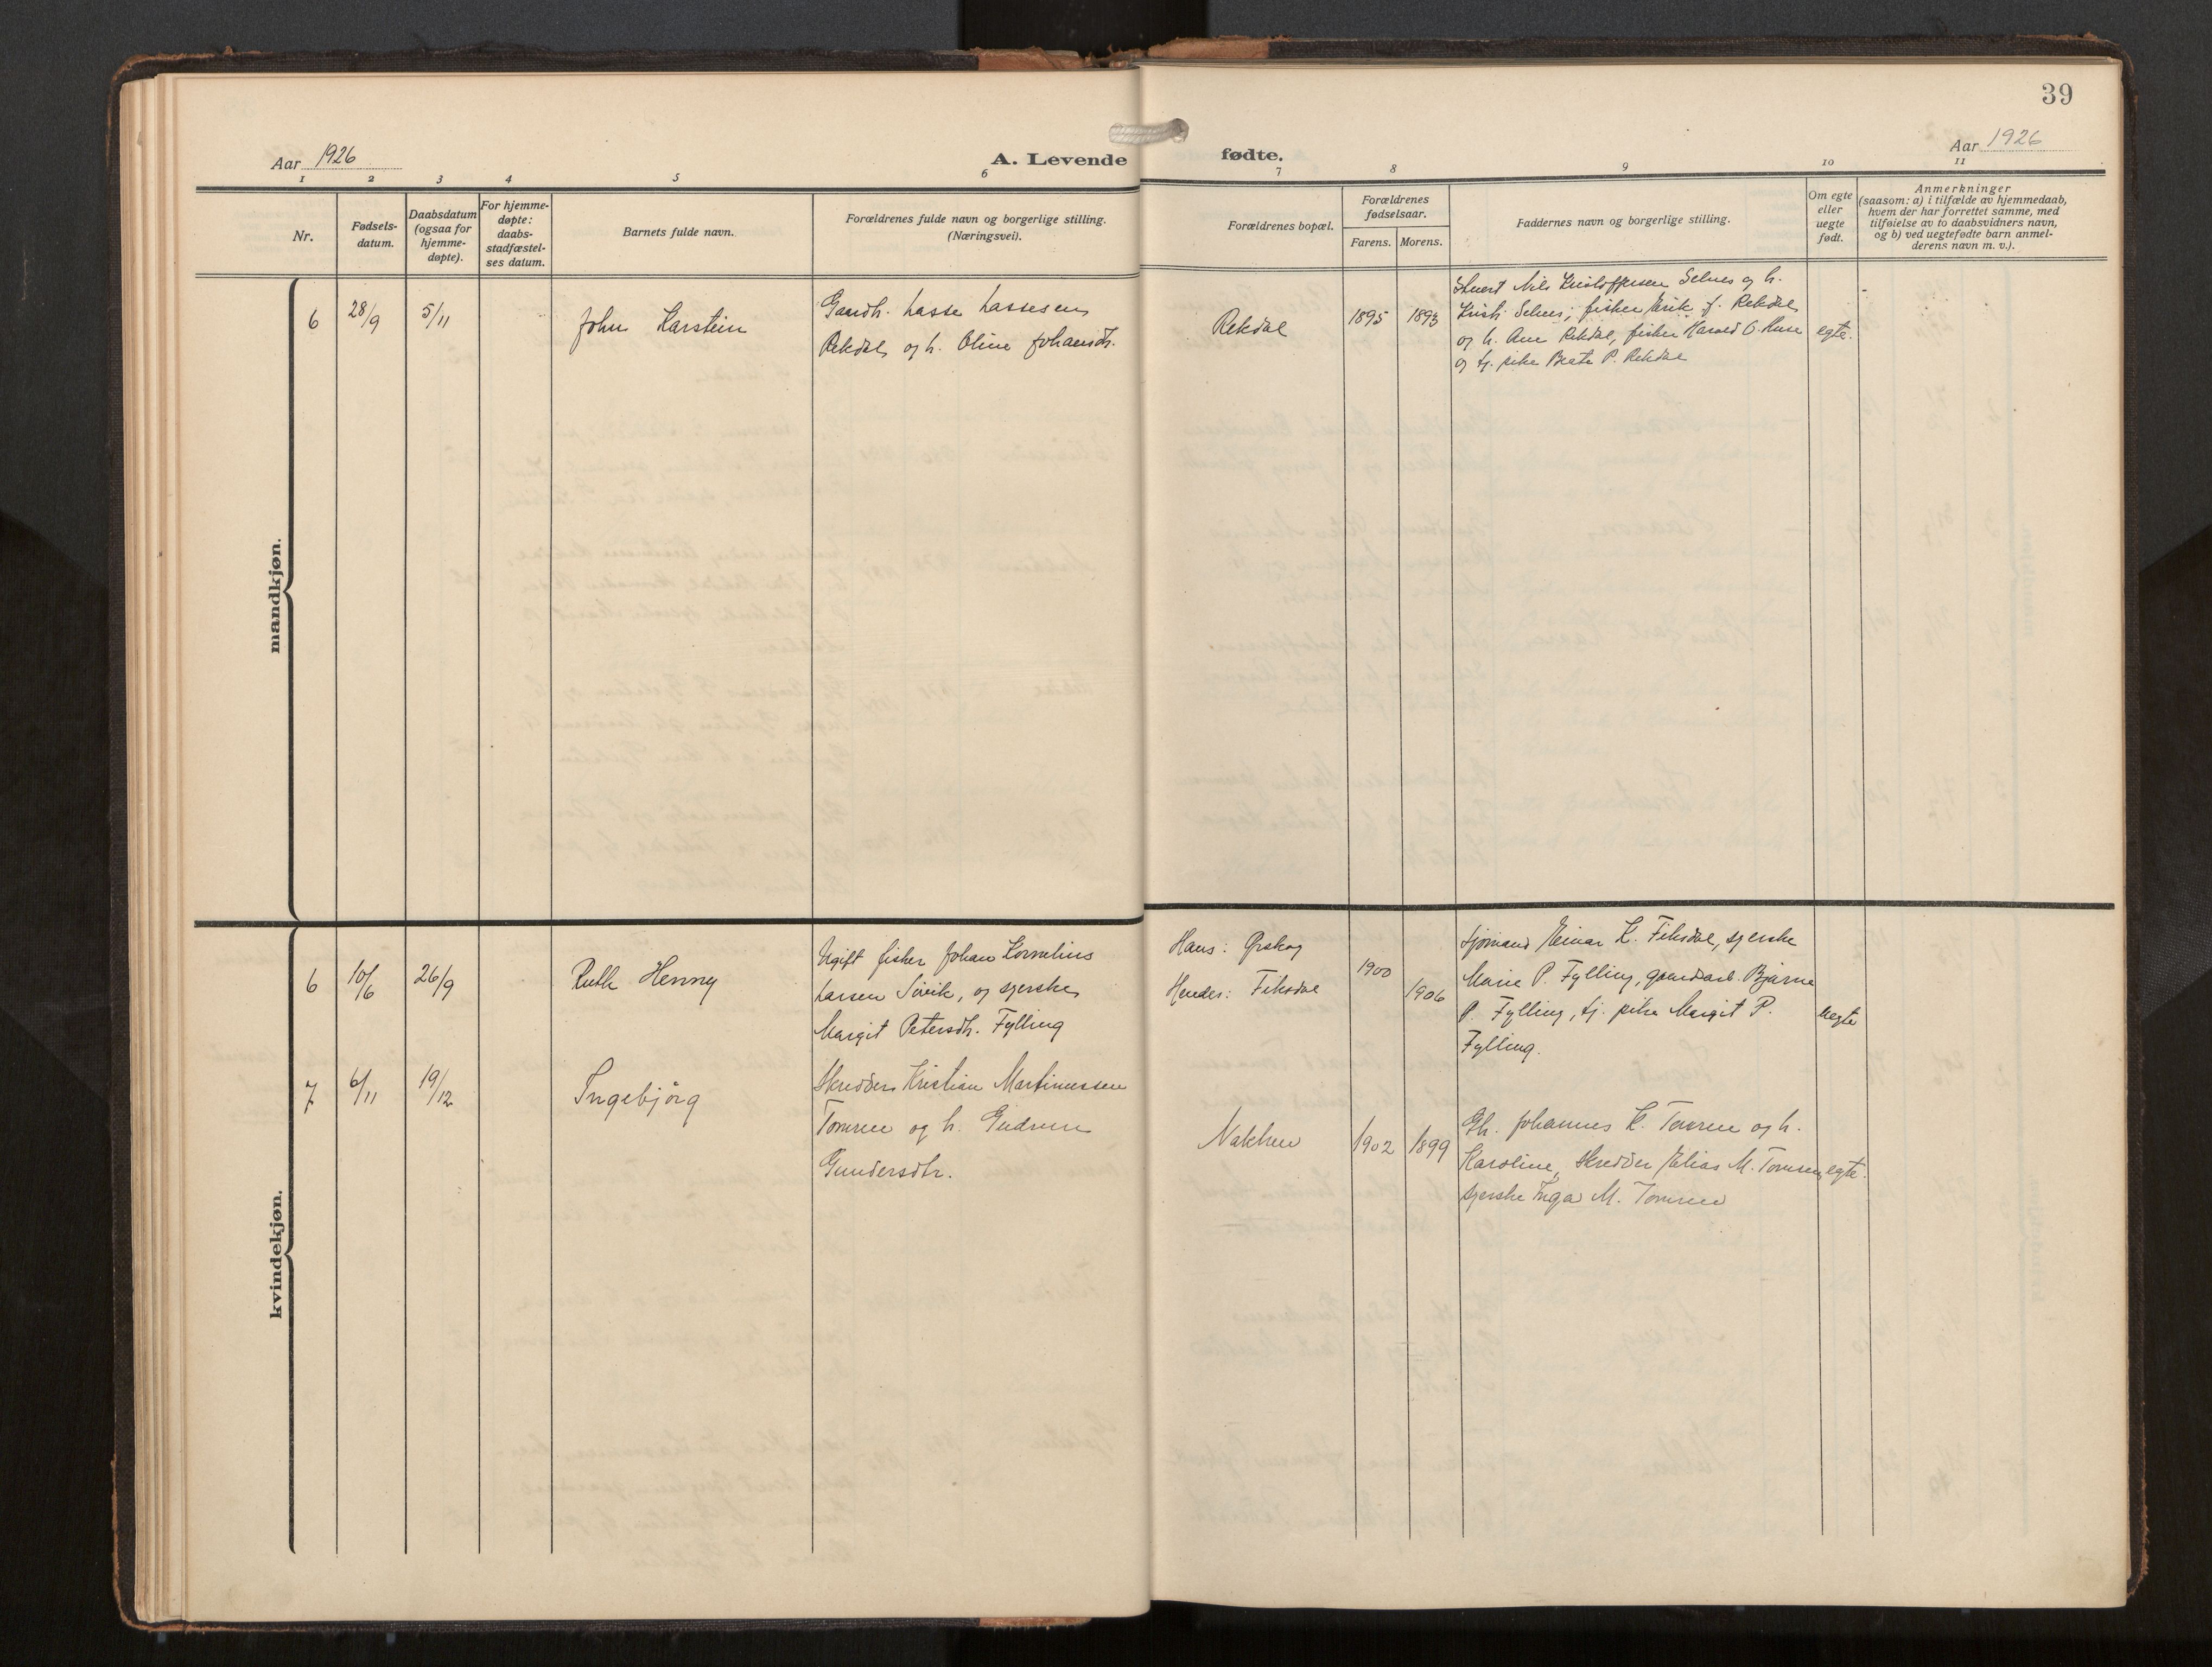 39
Aar 1926
A. Levende fødte.
Aar 1926
1 2 3 4 5 6 7 8 9 10 11
Nr.
Fødsels-
datum.
Daabsdatum
(ogsaa for
hjemme-
døpte).
For hjemme-
døpte:
daabs-
stadfæstel-
ses datum.
Barnets fulde navn.
Forældrenes fulde navn og borgerlige stilling.
(Næringsvei).
Forældrenes bopæl.
Forældrenes
fødselsaar.
Farens. Morens.
Faddernes navn og borgerlige stilling.
Om egte
eller
uegte
født.
Anmerkninger
(saasom: a) i tilfælde av hjemmedaab,
hvem der har forrettet samme, med
tilføielse av to daabsvidners navn,
og b) ved uegtefødte barn anmel-
derens navn m. v.).
mandkjøn.
6
28/9
5/11
John Karstein
Gaardb. Lasse Lassesen
Rekdal og h. Oline Johansdtr.
Rekdal
1895
1893
Nils Kristoffersen Selnes og h.
Selnes; fisker Erik J. Rekdal
og h. Ane Rekdal, fisker Harald O.
og tj. pike Beate P. Rekdal
egte.
kvindekjøn.
6
10/6
26/9
Ruth Henny
Ugift fisker Johan Kornelius
Larsen Søvik, og syerske
Margit Petersdtr. Fylling
Hans: Ørskog
Hendes: Fiksdal
1900
1906
Sjømand Einar K. Fiksdal, syerske
Marie P. Fylling, gaardarb. Bjarne
P. Fylling, tj. pike Margit P.
Fylling.
uegte
7
6/11
19/12
Ingebjørg
Skrædder Kristian Martinussen
Tomren og h. Gudrun
Gundersdtr.
Nakken
1902
1899
Gb. Johannes K. Tomren og h.
Karoline, skrædder Elias M. Tomren,
syerske Inga M. Tomren
egte.